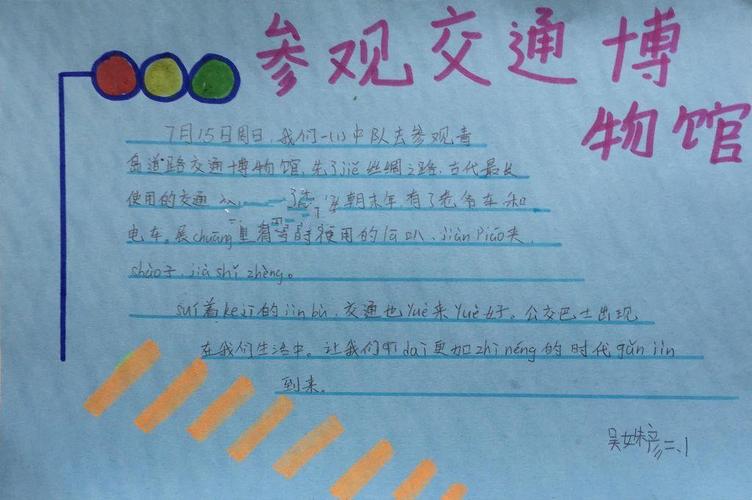 参观交通博
物馆
7月15日周日，我们一(1)中队去参观青
岛道路交通博物馆，先了jiě丝绸之路，古代最长
使用的交通 朝末年有了老爷车和
电车。展chuāng里有当时使用的lǎ叭、jiǎn Piào夹、
shào子、jià shǐ zhèng。
suí着ke jì的jìn bù，交通也Yuè来Yuè好。公交巴士出现
在我们生活中。让我们期dài更加zhì néng的时代gǎn jǐn
到来。
二、1